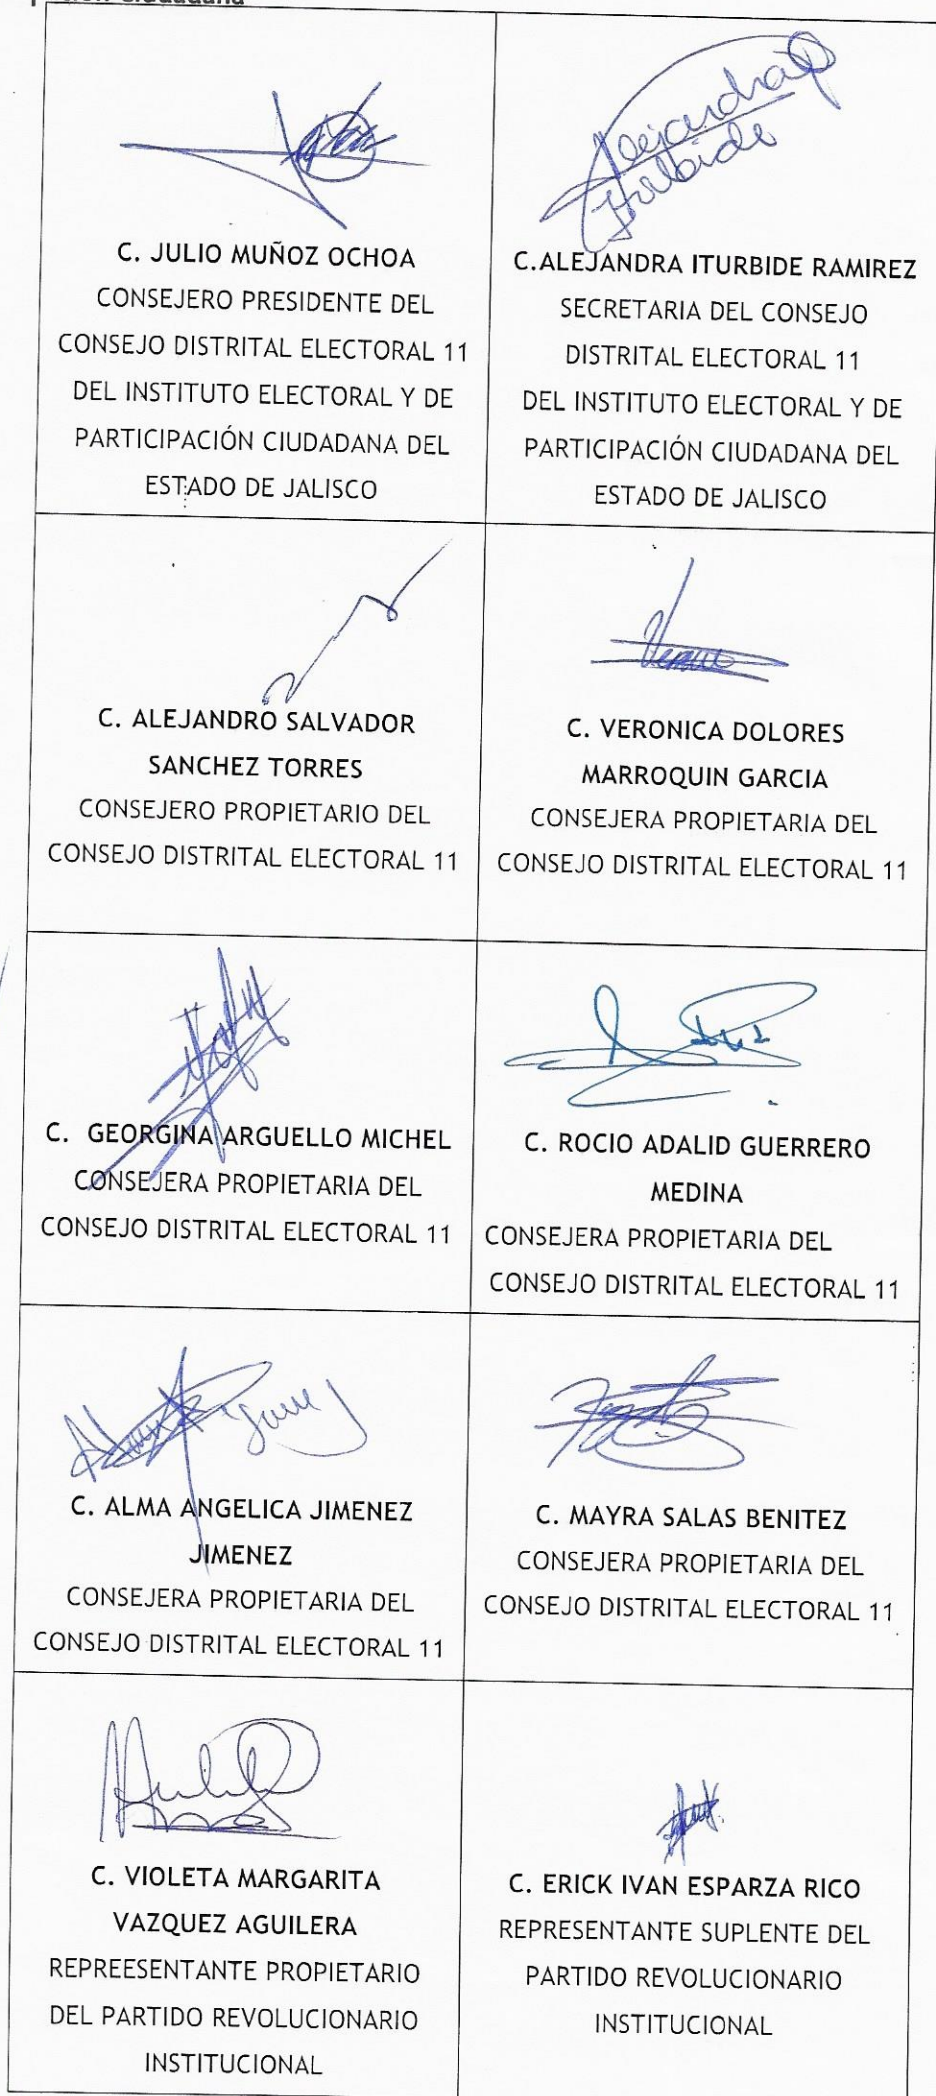 C. JULIO MUÑOZ OCHOA
CONSEJERO PRESIDENTE DEL
CONSEJO DISTRITAL ELECTORAL 11
DEL INSTITUTO ELECTORAL Y DE
PARTICIPACIÓN CIUDADANA DEL
ESTADO DE JALISCO
Alejandra
Iturbide
C.ALEJANDRA ITURBIDE RAMIREZ
SECRETARIA DEL CONSEJO
DISTRITAL ELECTORAL 11
DEL INSTITUTO ELECTORAL Y DE
PARTICIPACIÓN CIUDADANA DEL
ESTADO DE JALISCO
C. ALEJANDRO SALVADOR
SANCHEZ TORRES
CONSEJERO PROPIETARIO DEL
CONSEJO DISTRITAL ELECTORAL 11
C. VERONICA DOLORES
MARROQUIN GARCIA
CONSEJERA PROPIETARIA DEL
CONSEJO DISTRITAL ELECTORAL 11
C. GEORGINA ARGUELLO MICHEL
CONSEJERA PROPIETARIA DEL
CONSEJO DISTRITAL ELECTORAL 11
C. ROCIO ADALID GUERRERO
MEDINA
CONSEJERA PROPIETARIA DEL
CONSEJO DISTRITAL ELECTORAL 11
C. ALMA ANGELICA JIMENEZ
JIMENEZ
CONSEJERA PROPIETARIA DEL
CONSEJO DISTRITAL ELECTORAL 11
C. MAYRA SALAS BENITEZ
CONSEJERA PROPIETARIA DEL
CONSEJO DISTRITAL ELECTORAL 11
C. VIOLETA MARGARITA
VAZQUEZ AGUILERA
REPREESENTANTE PROPIETARIO
DEL PARTIDO REVOLUCIONARIO
INSTITUCIONAL
C. ERICK IVAN ESPARZA RICO
REPRESENTANTE SUPLENTE DEL
PARTIDO REVOLUCIONARIO
INSTITUCIONAL